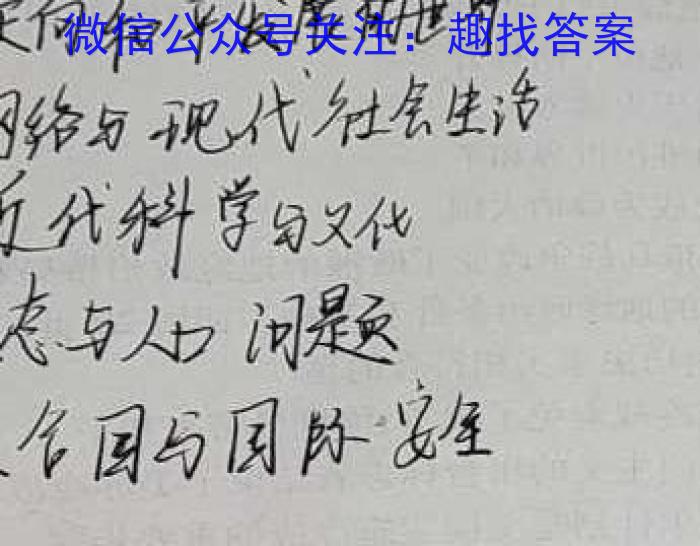 走向和平发展的世界
微信公众号关注：趣找答案
网络与现代社会生活
近代科学与文化
态与人口问题
合国与国际安全